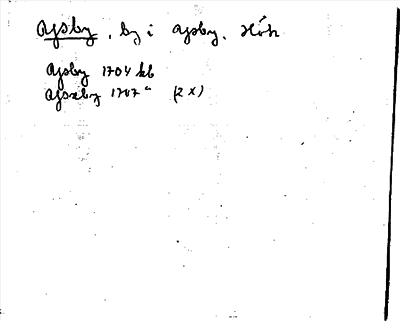 Ajsby, by i Ajsby. Höh
Ajsby 1704 kb
Ajsxby 1707 " (2 x)